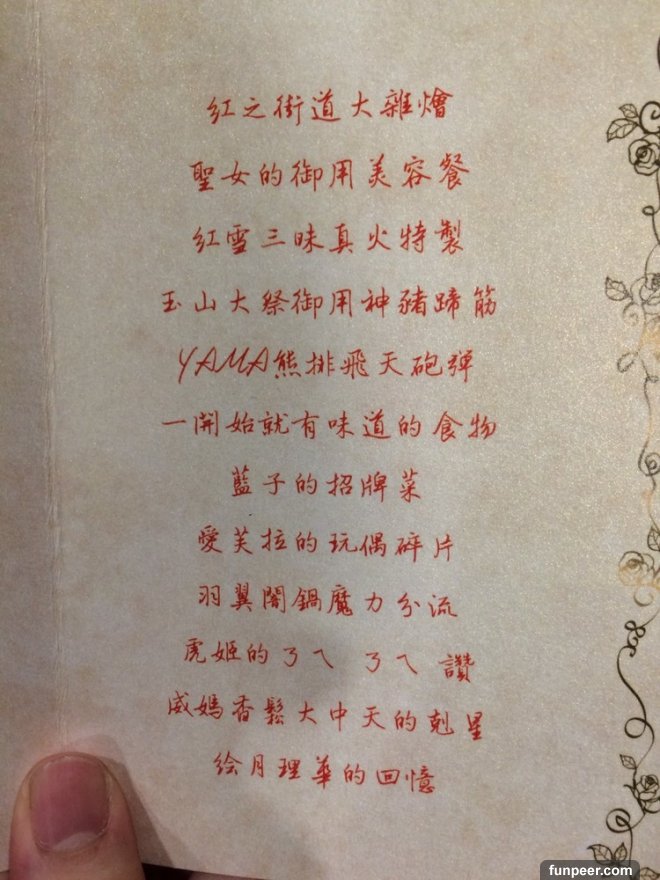 紅之街道大雜燴
聖女的御用美容餐
紅雪三昧真火特製
玉山大祭御用神豬蹄筋
YAMA熊排飛天砲彈
一開始就有味道的食物
藍子的招牌菜
愛芙拉的玩偶碎片
羽翼闇鍋魔力分流
虎姬的ㄋㄟ ㄋㄟ 讚
威媽香鬆大中天的剋星
绘月理華的回憶
funpeer.com